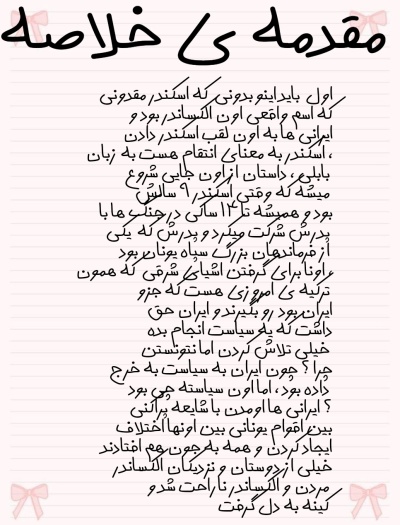 مقدمه ی خلاصه
اول باید اینو بدونی که اسکندر مقدونی
که اسم واقعی اون الکساندر بود و
ایرانی ها به اون لقب اسکندر دادن
، اسکندر به معنای انتقام هست به زبان
بابلی ، داستان از اون جایی شروع
میشه که وقتی اسکندر ۹ سالش
بود و همیشه تا ۱۲ سالگی در جنگ ها با
پدرش شرکت میکرد و پدرش که یکی
از فرماندهان بزرگ سپاه یونان بود
، اونا برای گرفتن آشیای شرقی که همون
ترکیه ی امروزی هست که جزو
ایران بود رو بگیرند و ایران حق
داشت که یه سیاست انجام بده
خیلی تلاش کردن اما نتونستن
چرا ؟ چون ایران یه سیاست به خرج
داده بود ، اما اون سیاسته چی بود
؟ ایرانی ها اومدن با شایعه پراکنی
بین اقوام یونانی بین اونها اختلاف
ایجاد کردن و همه به جون هم افتادند
خیلی از دوستان و نزدیکان الکساندر
مردن و الکساندر ناراحت شد و
کینه به دل گرفت